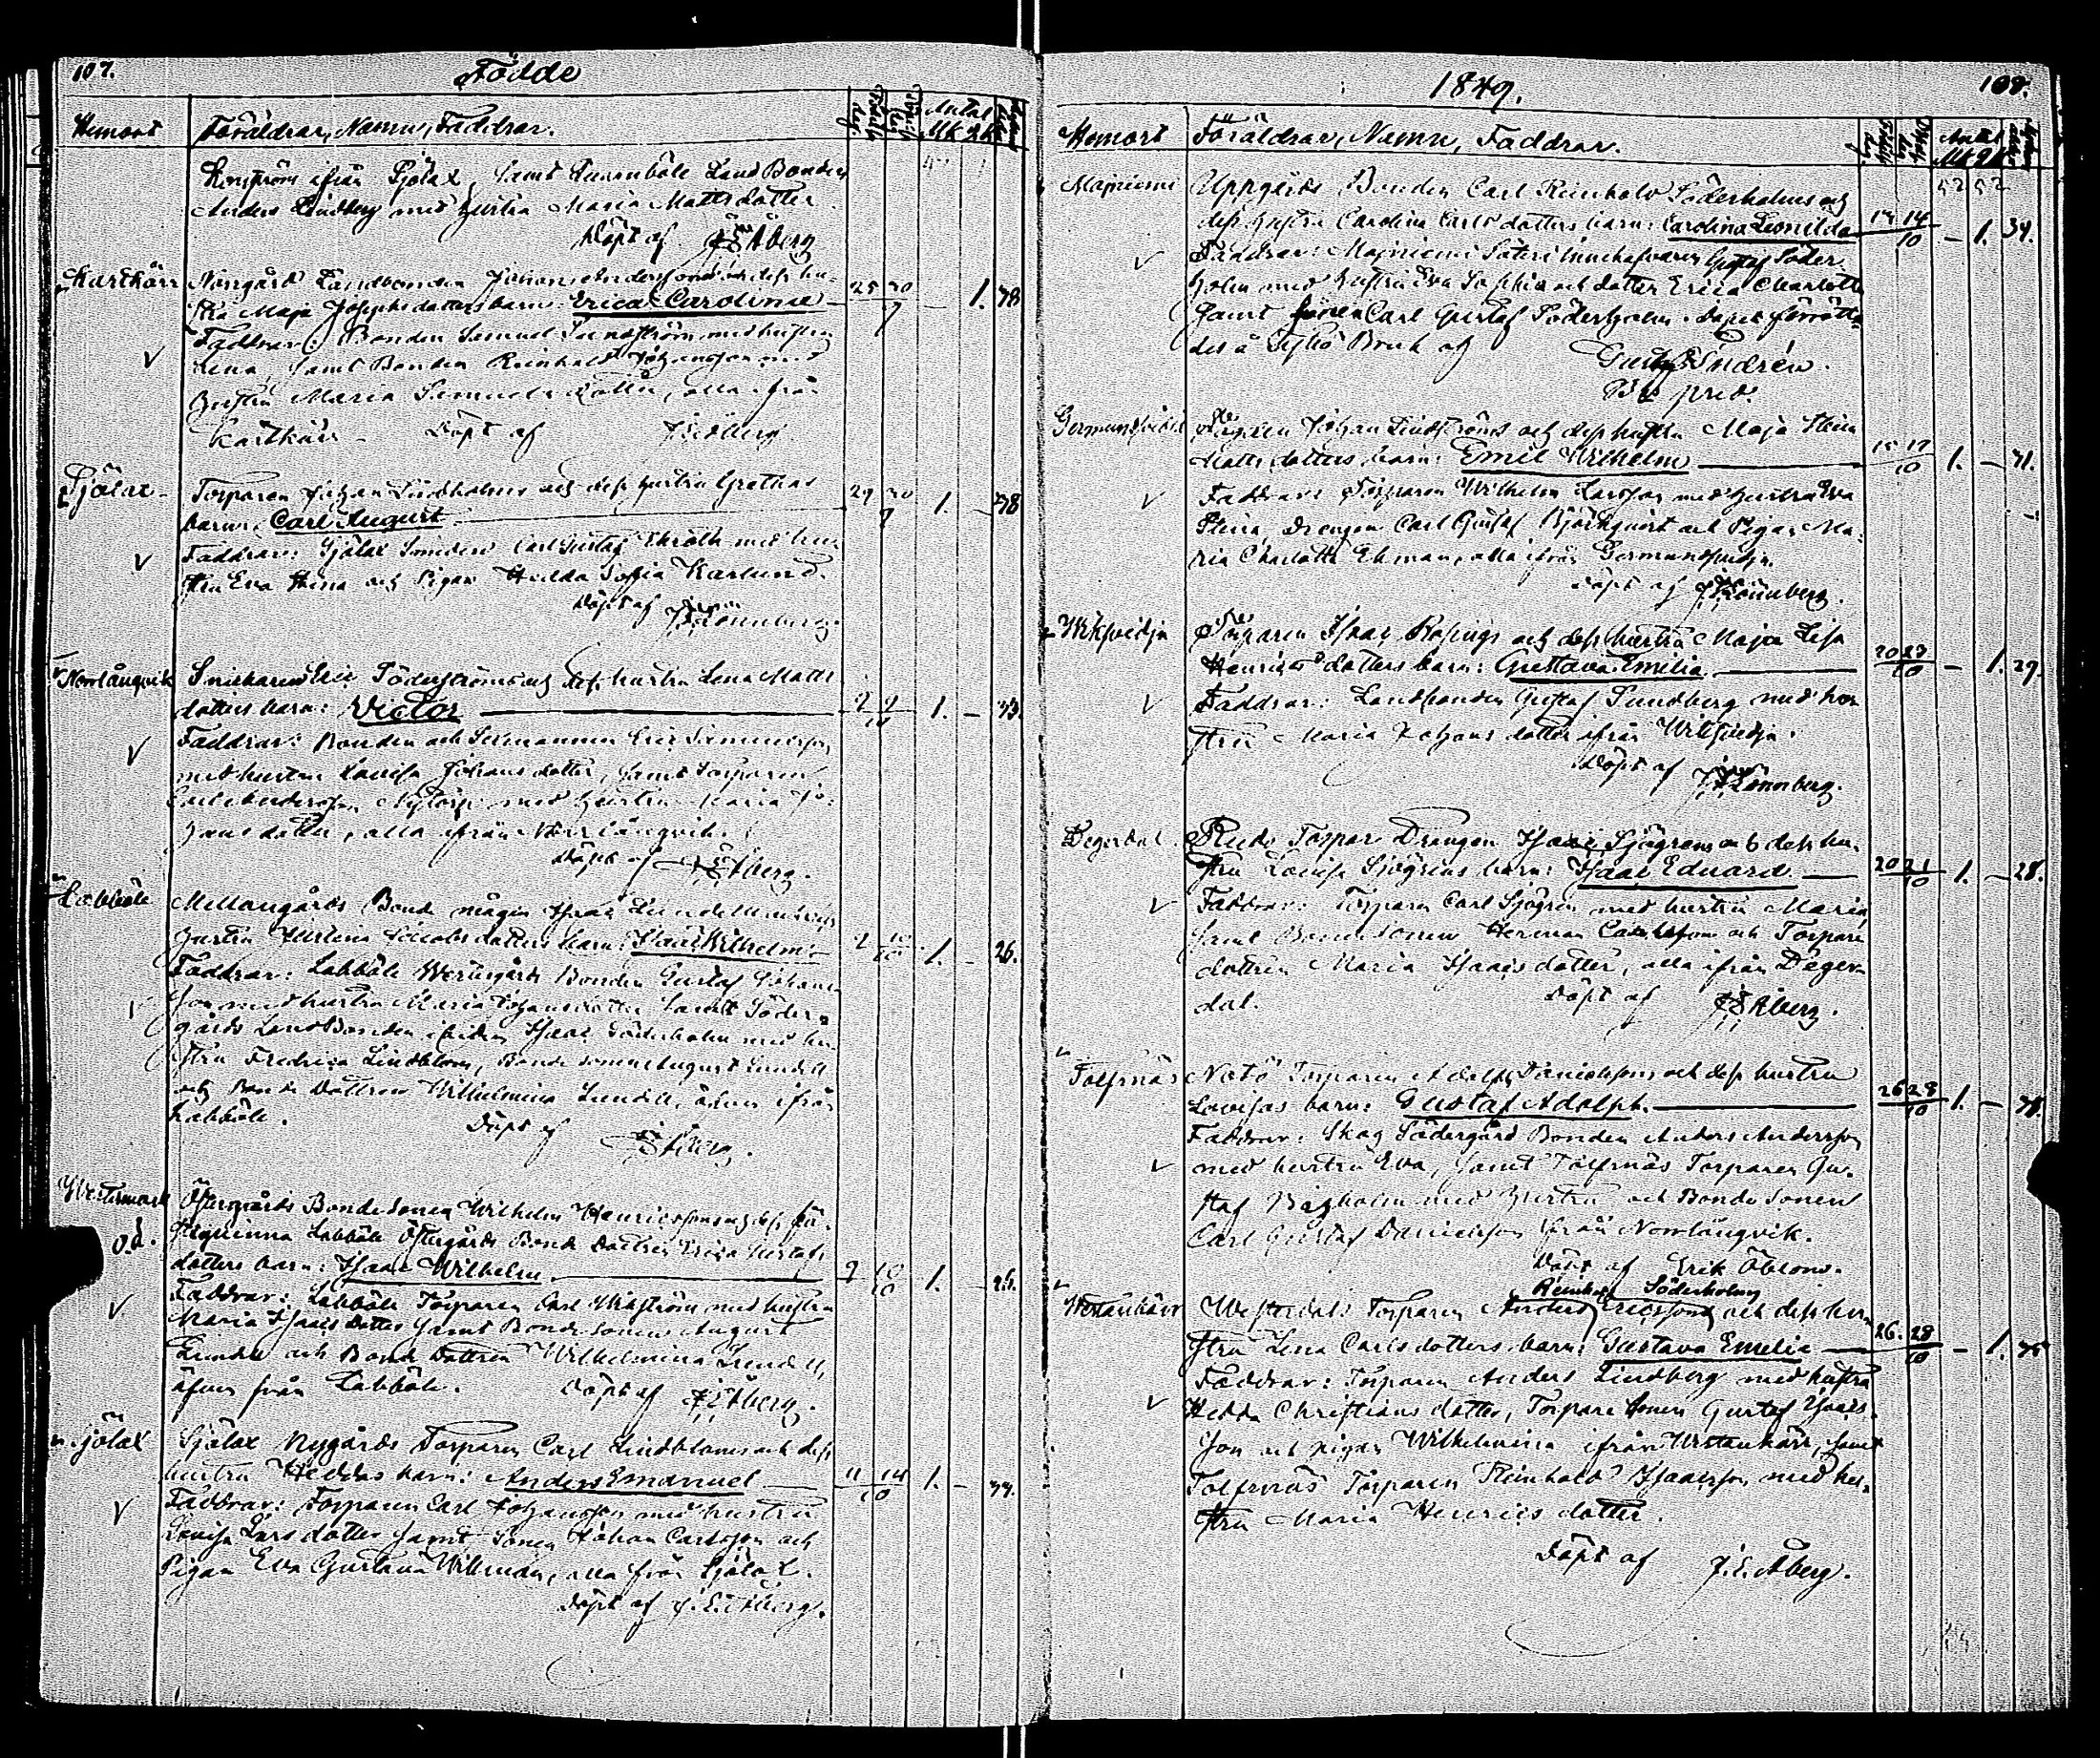 107.
Födde
Hemort Föräldrar, Namn, Faddrar. Antal
Mk Qk
ifrån Pjölax, samt Land Bonden
Anders Lindberg med hustru Maria Matts dotter
Döpt af J E Åberg
Kartkärr Norrgård Landbonden Johan Anderssons och dess hu-
stru Maja Josephs dotters barn: Erica Carolina 25 30 — 1. 38
7
Faddrar: Bonden Samuel Sundström med hustru
Lena, samt Bonden Reinhold Johansson med
hustru Maria Samuels dotter, alla ifrån
Kartkärr. Döpt af
Pjölax Torparen Johan Lindholms och dess hustru Grethas
barn: Carl August 29 30 1. — 38
Faddrar: Pjölax Smeden Carl Gustaf Ekroth med hu-
stru Eva Stina och Pigan Hedda Sofia Karlund.
Döpt af Lönnberg.
Norrlångvik Snickaren Eric Söderströms och dess hustru Lena Matts
dotters barn: Victor 2 9 1. — 33.
10
Faddrar: Bonden och Sexmannen Eric
med hustru Lovisa Johans dotter, samt Torparen
Andersson Nytorp med hustru Maria Jo-
hans dotter, alla ifrån Norrlångvik.
Döpt af J E Åberg.
Labböle Mellangårds Bonde mågen Isaac
hustru Jacobs dotters barn: Isaac Wilhelm 2 10 1. — 26.
10
Faddrar: Labböle Westergårds Bonden Gustaf Johans-
son med hustru Maria Johans dotter samt Söder-
gårds LandBonden Isaac Söderholm med hu-
stru Fredrica Lindblom, Bonde sonen August Lundell
och Bonde Dottren Wilhelmina Lundell, äfven ifrån
Labböle. Döpt af
J E Åberg.
Westermark Östergårds Bondesonen Wilhelm Henricssons och dess fä-
o.ä. steqvinna Labböle Östergårds Bonde Dottren Erica Gustafs
dotters barn: Isaac Wilhelm 9 10 1. — 26.
10
Faddrar: Labböle Torparen Carl Wikström med hustru
Maria Isaacs Dotter samt Bonde sonen August
Lundell och Bonde Dottren Wilhelmina Lundell,
äfven från Labböle. Döpt af J E Åberg.
Pjölax Pjölax Nygårds Torparen Carl Lindbloms och dess
hustru Heddas barn: Anders Emanuel 11 14 1. —
10
Faddrar: Torparen Carl Johansson med hustru
Lovisa Lars dotter samt Sonen Johan Carlsson och
Pigan Eva Gustava Willman, alla från Pjölax.
Döpt af J. E. Åberg.
1849. 108.
Hemort Föräldrar, Namn, Faddrar. Antal
Mk Qk
52 52
Majniemi Uppgårds Bonden Carl Reinhold Söderholms och
dess hustru Carolina Carls dotters barn: Carolina Leonilda 14 — 1. 34.
10
Faddrar: Majniemi Säteri innehafvaren Gustaf Söder
holm med hustru Eva Sophia och dotter Erica Charlotta
samt sonen Carl Gustaf Söderholm. Dopet förrätta-
des å Tykö Bruk af Gustaf Andrén.
Br pred.
Germundsvidja Drengen Johan Lindströms och dess hustru Maja Stina
Matts dotters barn: Emil Wilhelm 15 17 1. — 31.
10
Faddrar: Torparen Wilhelm Larsson med hustru Eva
Stina, Drengen Carl Gustaf Björkqvist och Pigan Ma-
ria Charlotta Ekman, alla ifrån Germundsvidja.
Döpt af Lönnberg.
Wiksvidja Torparen Isaac och dess hustru Maja Lisa
Henrics dotters barn: Gustava Emilia 20 27 — 1. 29.
10
Faddrar: Landbonden Gustaf Sundberg med hu-
stru Maria Johans dotter ifrån Wiksvidja.
Döpt af Lönnberg.
Degerdal Ruds Torpar Drengen Isaac Sjögrens och dess hu-
stru Lovisa Sjögrens barn: Isaac Eduard 20 21 1. — 28.
10
Faddrar: Torparen Carl Sjögren med hustru Maria,
samt Bondesonen Herman Carlsson och Torpare
dottren Maria Isaacs dotter, alla ifrån Deger-
dal. Döpt af J E Åberg.
Tolfsnäs Notö Torparen Adolph Danielssons och dess hustru
Lovisas barn: Gustaf Adolph. 26 28 1. —
10
Faddrar: Skog Södergård Bonden Anders Andersson
med hustru Eva, samt Tolfsnäs Torparen Gu-
staf med hustru och Bonde Sonen
Carl Gustaf Danielsson från Norrlångvik.
Döpt af Erik Öblom.
Reinhold Söderholms
Westankärr Westerdals Torparen Anders Ericssons och dess hu-
stru Lena Carls dotters barn: Gustava Emelia 26. 28 — 1.
10
Faddrar: Torparen Anders Lindberg med hustru
Hedda Christians dotter, Torpare sonen Gustaf Isaacs-
son och pigan Wilhelmina ifrån Westankärr, samt
Tolfsnäs Torparen Reinhold Isaacsson med hu-
stru Maria Henrics dotter.
Döpt af J. E. Åberg.